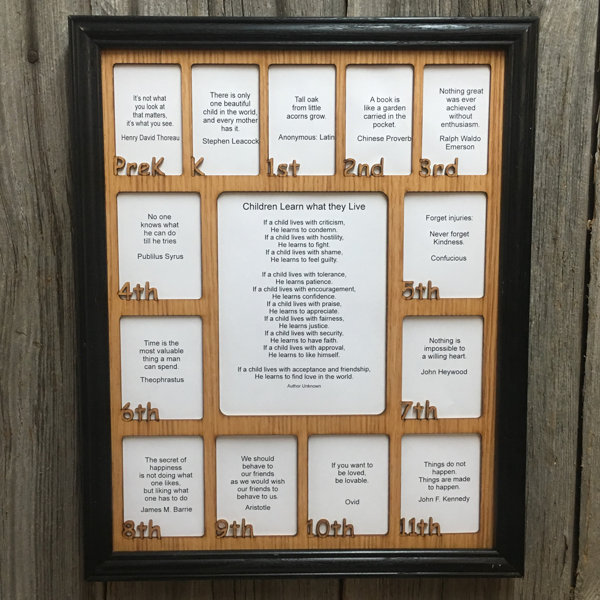 It's not what
you look at
that matters,
it's what you see.
Henry David Thoreau
PreK
There is only
one beautiful
child in the world,
and every mother
has it.
Stephen Leacock
K
Tall oak
from little
acorns grow.
Anonymous: Latin
1st
A book is
like a garden
carried in the
pocket.
Chinese Proverb
2nd
Nothing great
was ever
achieved
without
enthusiasm.
Ralph Waldo
Emerson
3rd
No one
knows what
he can do
till he tries
Publilius Syrus
4th
Children Learn what they Live
If a child lives with criticism,
He learns to condemn.
If a child lives with hostility,
He learns to fight.
If a child lives with shame,
He learns to feel guilty.
If a child lives with tolerance,
He learns patience.
If a child lives with encouragement,
He learns confidence.
If a child lives with praise,
He learns to appreciate.
If a child lives with fairness,
He learns justice.
If a child lives with security,
He learns to have faith.
If a child lives with approval,
He learns to like himself.
If a child lives with acceptance and friendship,
He learns to find love in the world.
Author Unknown
Forget injuries:
Never forget
Kindness.
Confucious
5th
Time is the
most valuable
thing a man
can spend.
Theophrastus
6th
Nothing is
impossible to
a willing heart.
John Heywood
7th
The secret of
happiness
is not doing what
one likes,
but liking what
one has to do
James M. Barrie
8th
We should
behave to
our friends
as we would wish
our friends to
behave to us.
Aristotle
9th
If you want to
be loved,
be lovable.
Ovid
10th
Things do not
happen.
Things are made
to happen.
John F. Kennedy
11th